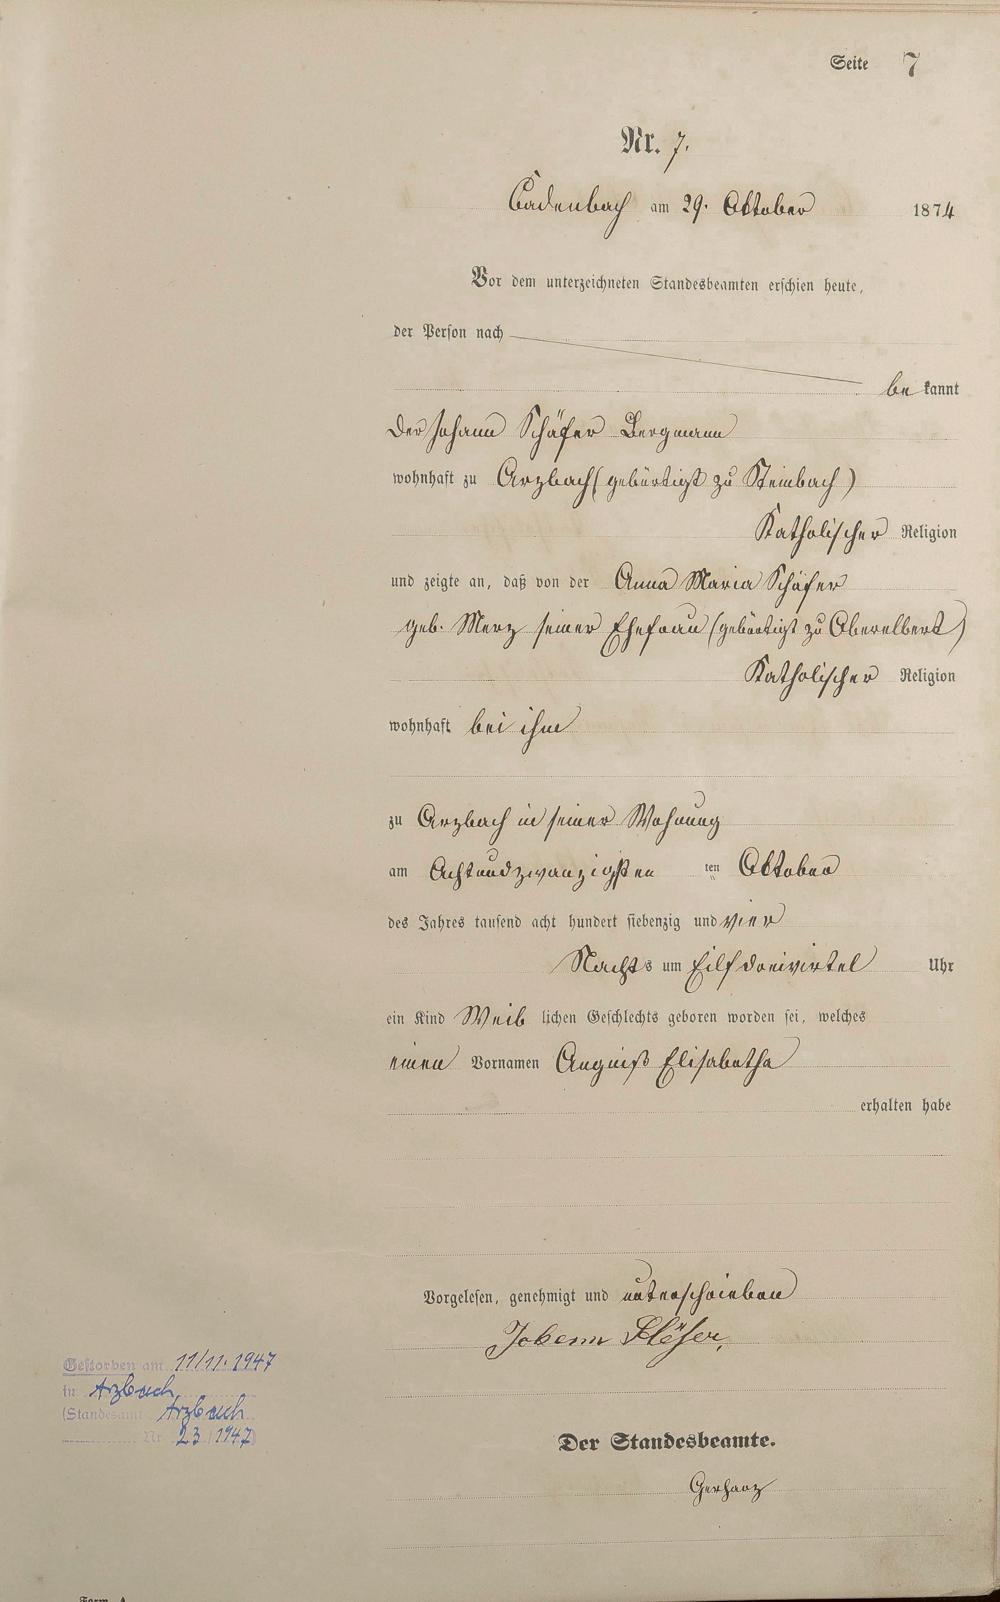 Seite 7
Nr. 7.
Cadenbach am 29. Oktober 1874
Vor dem unterzeichneten Standesbeamten erschien heute,
der Person nach
be kannt
der Johann Schäfer Bergmann
wohnhaft zu Arzbach (gebürtigt zu Steinbach)
Katholischer Religion
und zeigte an, daß von der Anna Maria Schäfer
geb. Merz seiner Ehefrau (gebürtigt zu Oberelbert)
Katholischer Religion
wohnhaft bei ihm
zu Arzbach in seiner Wohnung
am Achtundzwanzigsten ten Oktober
des Jahres tausend acht hundert siebenzig und vier
Nachts um Eilf dreivirtel Uhr
ein Kind Weib lichen Geschlechts geboren worden sei, welches
einen Vornamen Angniß Elisabetha
erhalten habe
Vorgelesen, genehmigt und unterschrieben
Johann
Gestorben am 11/11. 1947
in Arzbach
(Standesamt Arzbach
Nr. 23/1947)
Der Standesbeamte.
Gerharz
Form. A